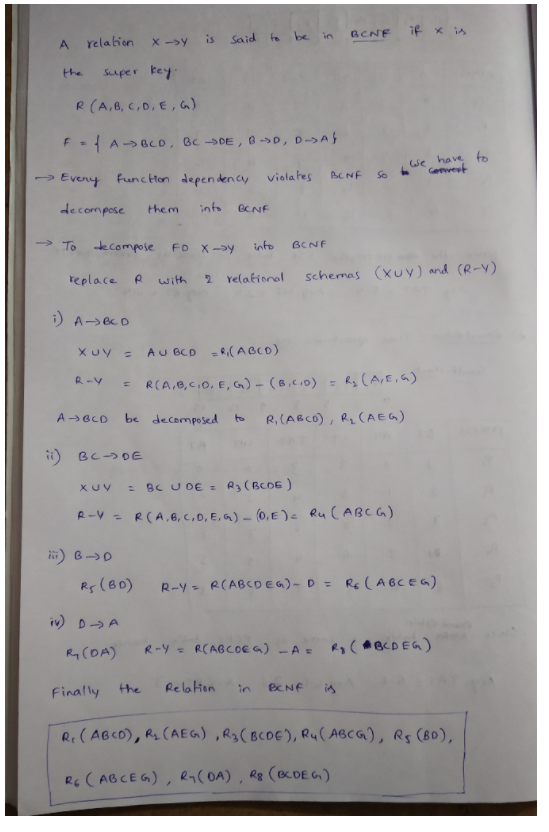 A relation X→Y is said to be in BCNF if x is
the super key.
R (A,B,C,D,E,G)
F = { A→BCD, BC→DE, B→D, D→A}
→ Every function dependency violates BCNF so we have to
decompose them into BCNF
→ To decompose FD X→Y into BCNF
replace R with 2 relational schemas (XUY) and (R-Y)
i) A→BCD
XUY = A U BCD = R₁(ABCD)
R-Y = R(A,B,C,D,E,G) - (B,C,D) = R₂(A,E,G)
A→BCD be decomposed to R₁(ABCD), R₂(AEG)
ii) BC→DE
XUY = BC U DE = R3(BCDE)
R-Y = R(A,B,C,D,E,G) - (D,E) = R4(ABCG)
iii) B→D
R5(BD) R-Y = R(ABCDEG) - D = R6(ABCEG)
iv) D→A
R7(DA) R-Y = R(ABCDEG) - A = R8(BCDEG)
Finally the Relation in BCNF is
R₁(ABCD), R₂(AEG), R3(BCDE), R4(ABCG), R5(BD),
R6(ABCEG), R7(DA), R8(BCDEG)